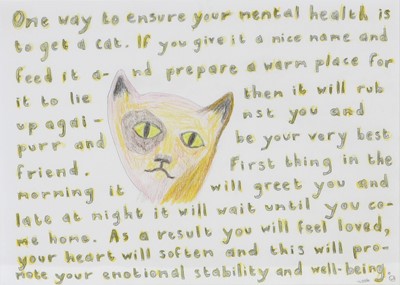 One way to ensure your mental health is
to get a cat. If you give it a nice name and
feed it a- nd prepare a warm place for
it to lie then it will rub
up agai- nst you and
purr and be your very best
friend. First thing in the
morning it will greet you and
late at night it will wait until you co-
me home. As a result you will feel loved,
your heart will soften and this will pro-
mote your emotional stability and well-being.